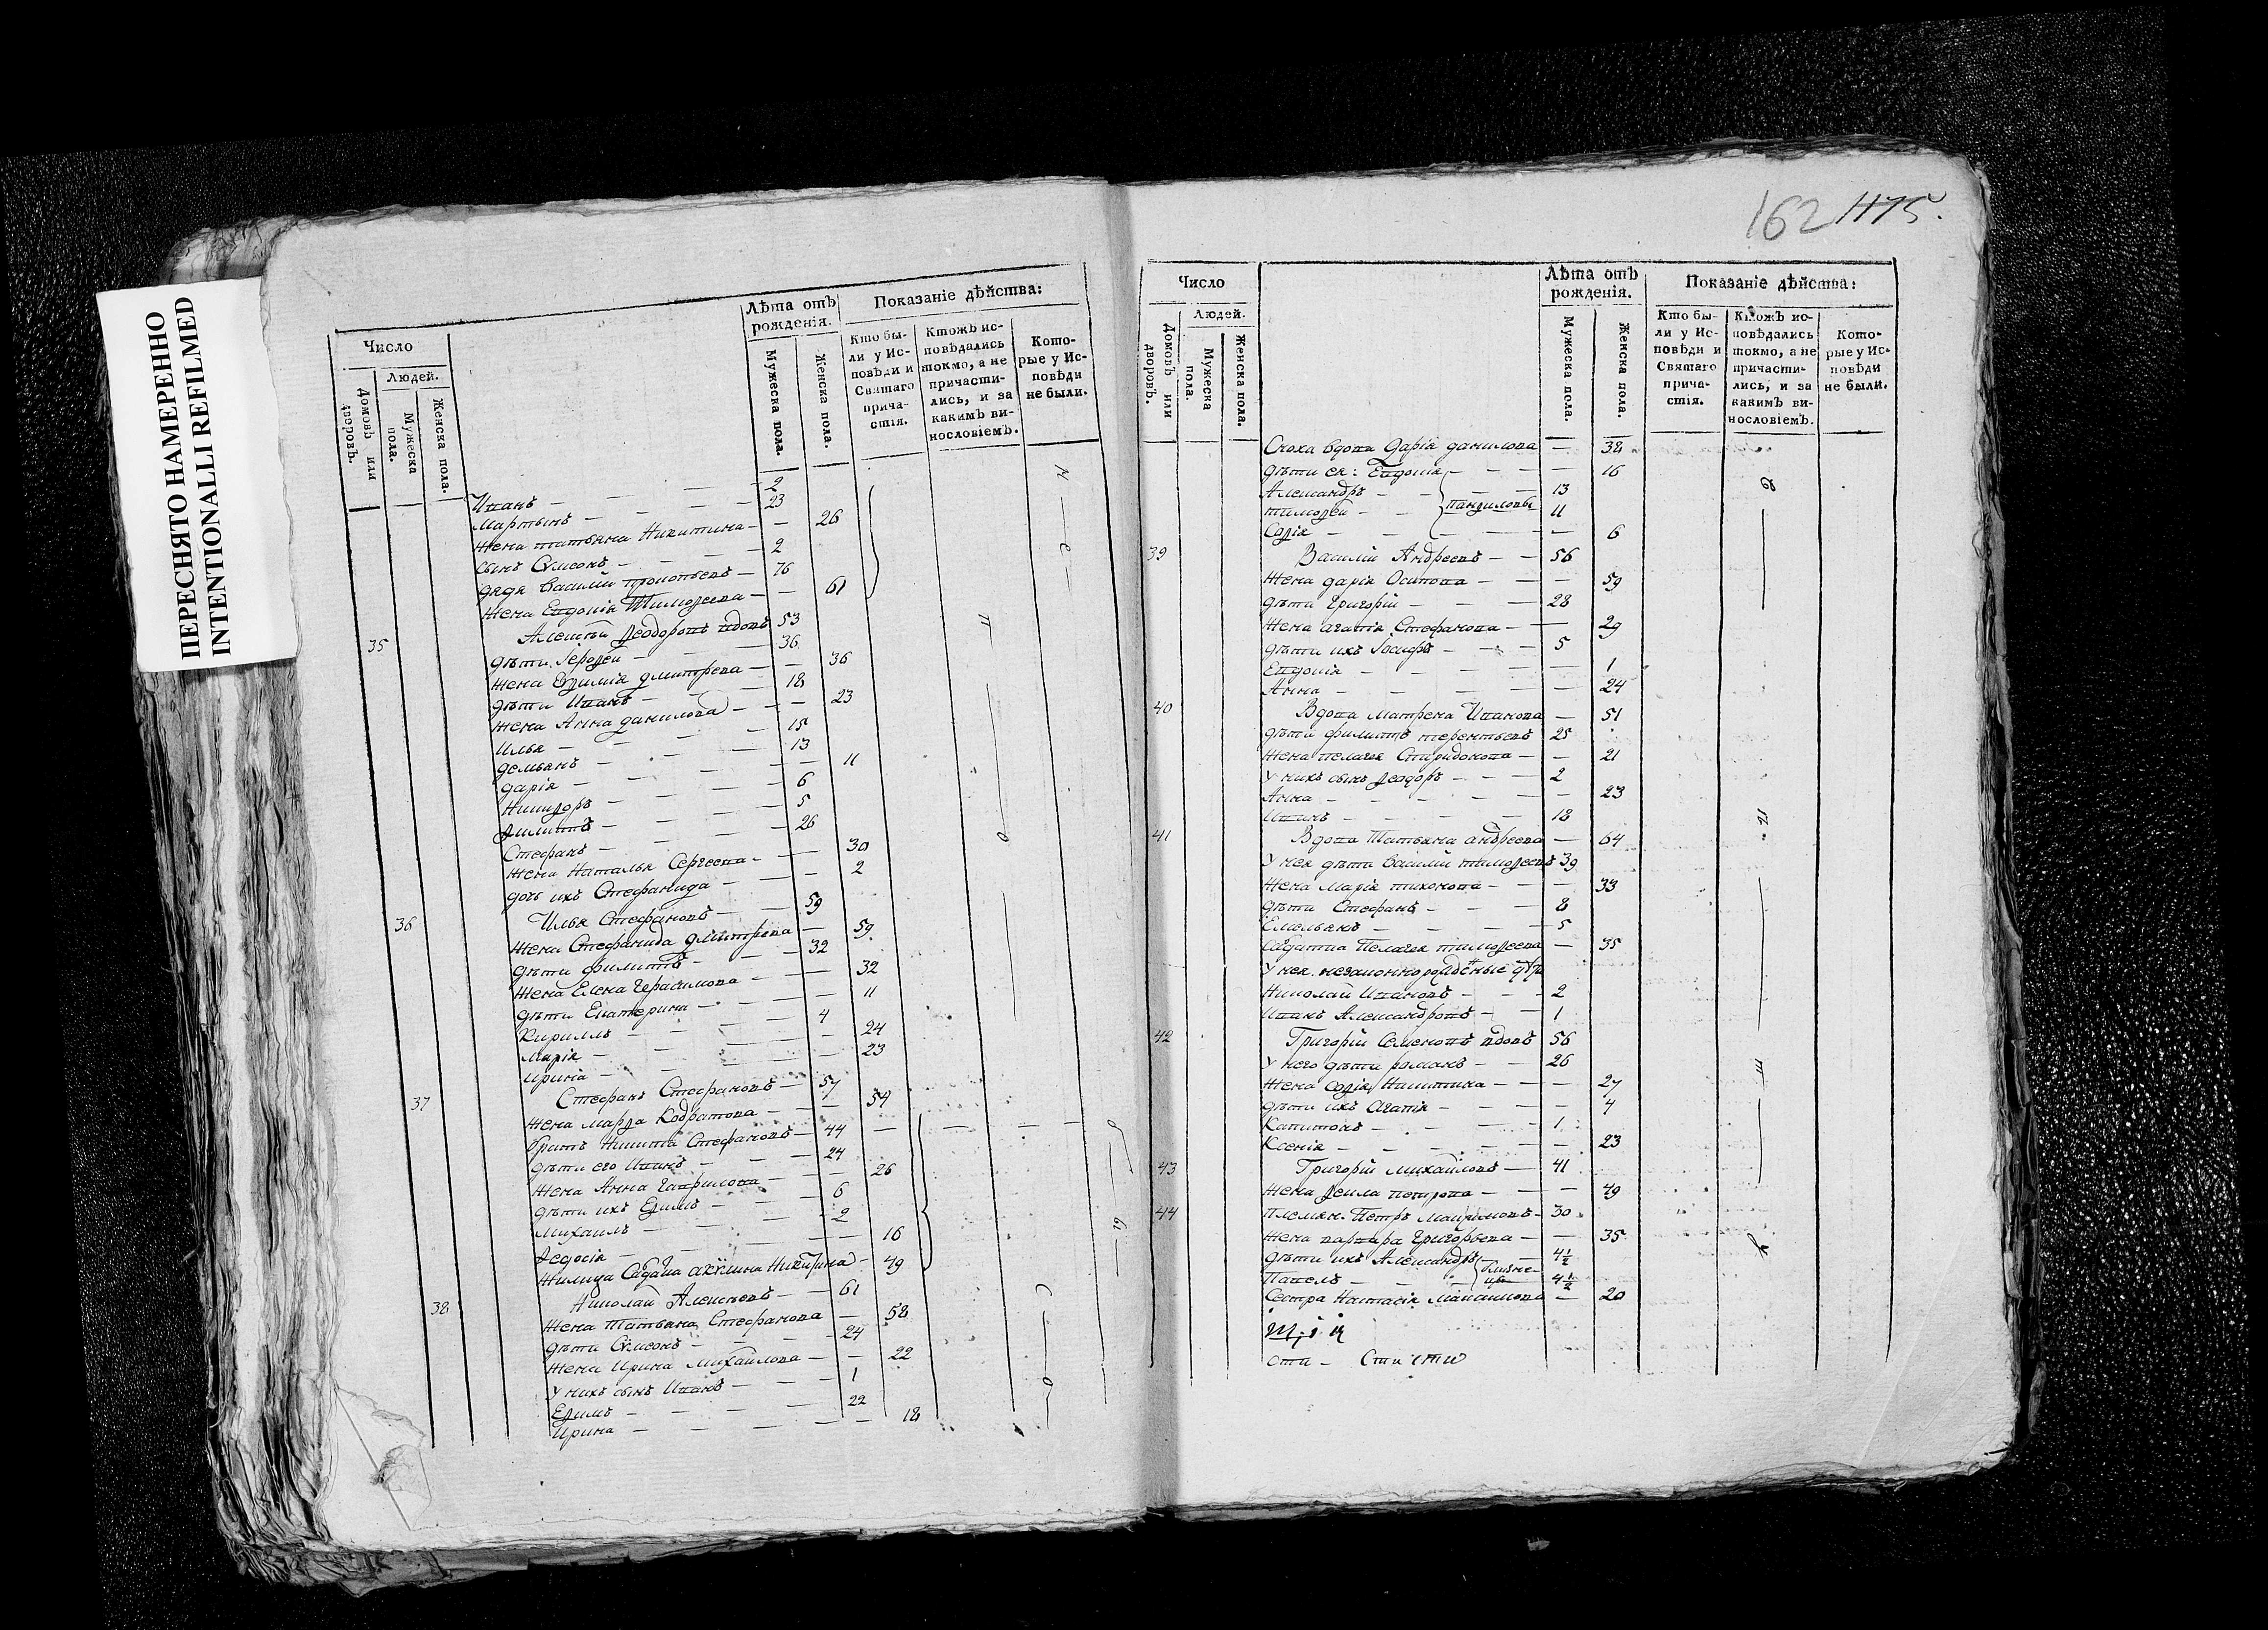 ПЕРЕСНЯТО НАМЕРЕННО
INTENTIONALLI REFILMED
162 1175.
Число
Людей.
Домовъ или дворовъ.
Мужеска пола.
Женска пола.
Лѣта отъ рожденія.
Мужеска пола.
Женска пола.
Показаніе дѣйства:
Кто были у Исповѣди и Святаго причастія.
Ктожъ исповѣдались токмо, а не причастились, и за какимъ винословіемъ.
Которые у Исповѣди не были.
Иванъ — 2
Мартынъ — 23
Жена татьяна Никитина — 26
сынъ Сѵмеонъ — 2
дядя василій прокопьевъ — 76
Жена Евдокія Тимоѳеева — 61
35 Алексѣй Ѳеодоровъ вдовъ 53
дѣти Іероѳей — 36
Жена Евѳимія дмитрева — 36
дѣти Иванъ — 18
Жена Анна данилова — 23
Илья — 15
демьянъ — 13
дарія — 11
Никиѳоръ — 6
филипъ — 5
Стефанъ — 26
Жена Наталья Сергеева — 30
дочь ихъ Стефанида — 2
36 Илья Стефановъ — 59
Жена Стефанида дмитрева — 59
дѣти филипъ — 32
Жена Елена Герасимова — 32
дѣти Екатерина — 11
Кириллъ — 4
Марія — 24
Ирина — 23
37 Стефанъ Стефановъ — 57
Жена марѳа Кодратова — 54
братъ Никита Стефановъ — 44
дѣти его Иванъ — 24
Жена Анна Гаврилова — 26
дѣти ихъ Ефимъ — 6
Михаилъ — 2
Ѳедосія — 16
Жилица Солдатка акулина Никитина — 49
38 Николай Алексѣевъ — 61
Жена Татьяна Стефанова — 58
дѣти Сѵмеонъ — 24
Жена Ирина Михайлова — 22
У нихъ сынъ Иванъ — 1
Ефимъ — 22
Ирина — 18
Число
Людей.
Домовъ или дворовъ.
Мужеска пола.
Женска пола.
Лѣта отъ рожденія.
Мужеска пола.
Женска пола.
Показаніе дѣйства:
Кто были у Исповѣди и Святаго причастія.
Ктожъ исповѣдались токмо, а не причастились, и за какимъ винословіемъ.
Которые у Исповѣди не были.
Сноха вдова Дарія данилова — 38
дѣти ея: Евдокія — 16
Александръ — 13
тимоѳей — Панфиловы 11
Софія — 6
39 Василій Андреевъ — 56
Жена дарія Осипова — 59
дѣти Григорій — 28
Жена агапія Стефанова — 29
дѣти ихъ Іосифъ — 5
Евдокія — 1
Анна — 24
40 Вдова Матрена Иванова — 51
дѣти филипъ терентьевъ 25
Жена пелагея Спиридонова — 21
У нихъ сынъ Ѳеодоръ — 2
Анна — 23
Иванъ — 18
41 Вдова Татьяна андреева — 64
У нея дѣти василій тимоѳеевъ 39
Жена Марія тихонова — 33
дѣти Стефанъ — 8
Емельянъ — 5
Солдатка Пелагея тимоѳеева — 35
У нея незаконнорожденные дѣти
Николай Ивановъ — 2
Иванъ Александровъ — 1
42 Григорій Семеновъ вдовъ 56
У него дѣти романъ — 26
Жена Софія Никитина — 27
дѣти ихъ Агапія — 4
Капитонъ — 1
Ксенія — 23
43 Григорій Михайловъ — 41
Жена Ѳекла петрова — 49
44 Племян. Петръ Максимовъ — 30
Жена варвара Григорьева — 35
дѣти ихъ Александръ — близнецы 4½
Павелъ — 4½
Сестра Настасія Максимова — 20